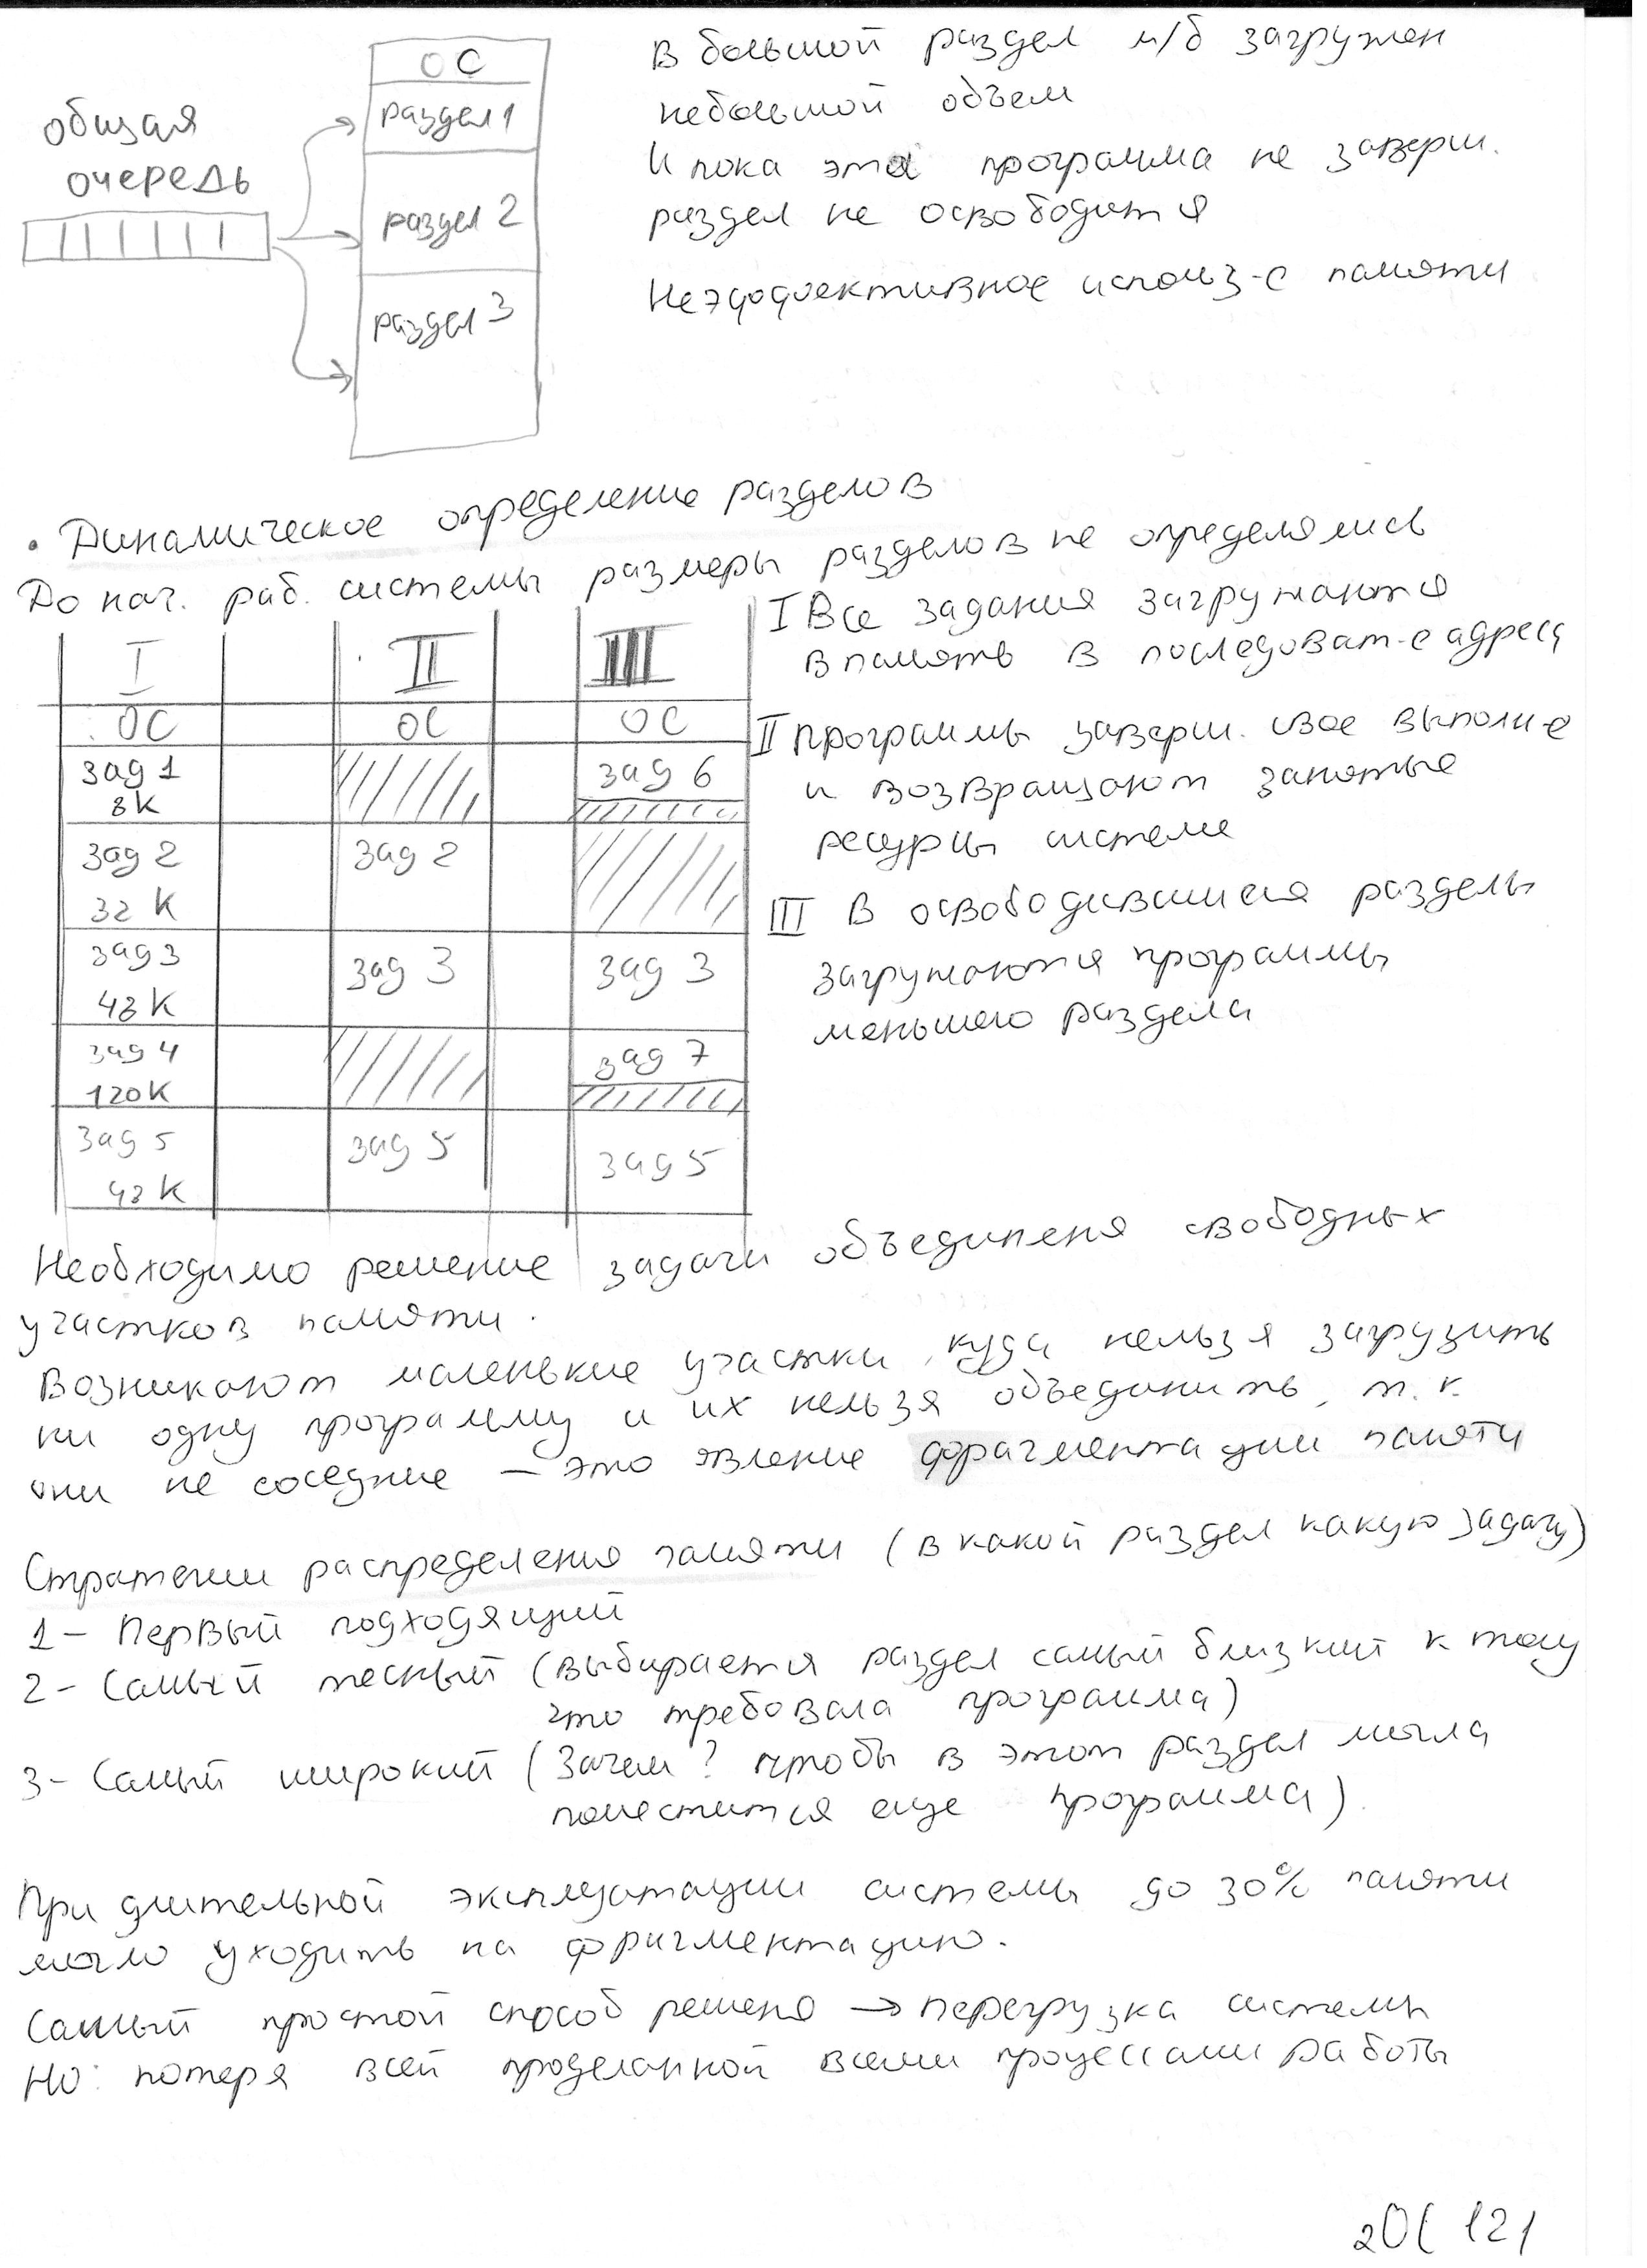 ОС
раздел 1
раздел 2
раздел 3
общая
очередь
В большой раздел м/б загружен
небольшой объем
И пока эта программа не заверш.
раздел не освободится
Неэффективное использ-е памяти
• Динамическое определение разделов
До нач. раб. системы размеры разделов не определялись
I II III
ОС ОС ОС
зад 1 зад 6
8К
зад 2 зад 2
32 К
зад 3 зад 3 зад 3
48 К
зад 4 зад 7
120К
зад 5 зад 5 зад 5
48 К
I Все задания загружаются
в память в последоват-е адреса
II Программы заверш. свое выполн-е
и возвращают занятые
ресурсы системе
III В освободившиеся разделы
загружаются программы
меньшего раздела
Необходимо решение задачи объединеня свободных
участков памяти.
Возникают маленькие участки, куда нельзя загрузить
ни одну программу и их нельзя объединить, т.к.
они не соседние – это явление фрагментации памяти
Стратегии распределения памяти (в какой раздел какую задачу)
1 – Первый подходящий
2 – Самый тесный (выбирается раздел самый близкий к тому
что требовала программа)
3 – Самый широкий (Зачем? чтобы в этот раздел могла
поместится еще программа).
При длительной эксплуатации системы до 30% памяти
могло уходить на фрагментацию.
Самый простой способ решеня → перегрузка системы
НО: потеря всей проделанной всеми процессами работы
2ОС 121